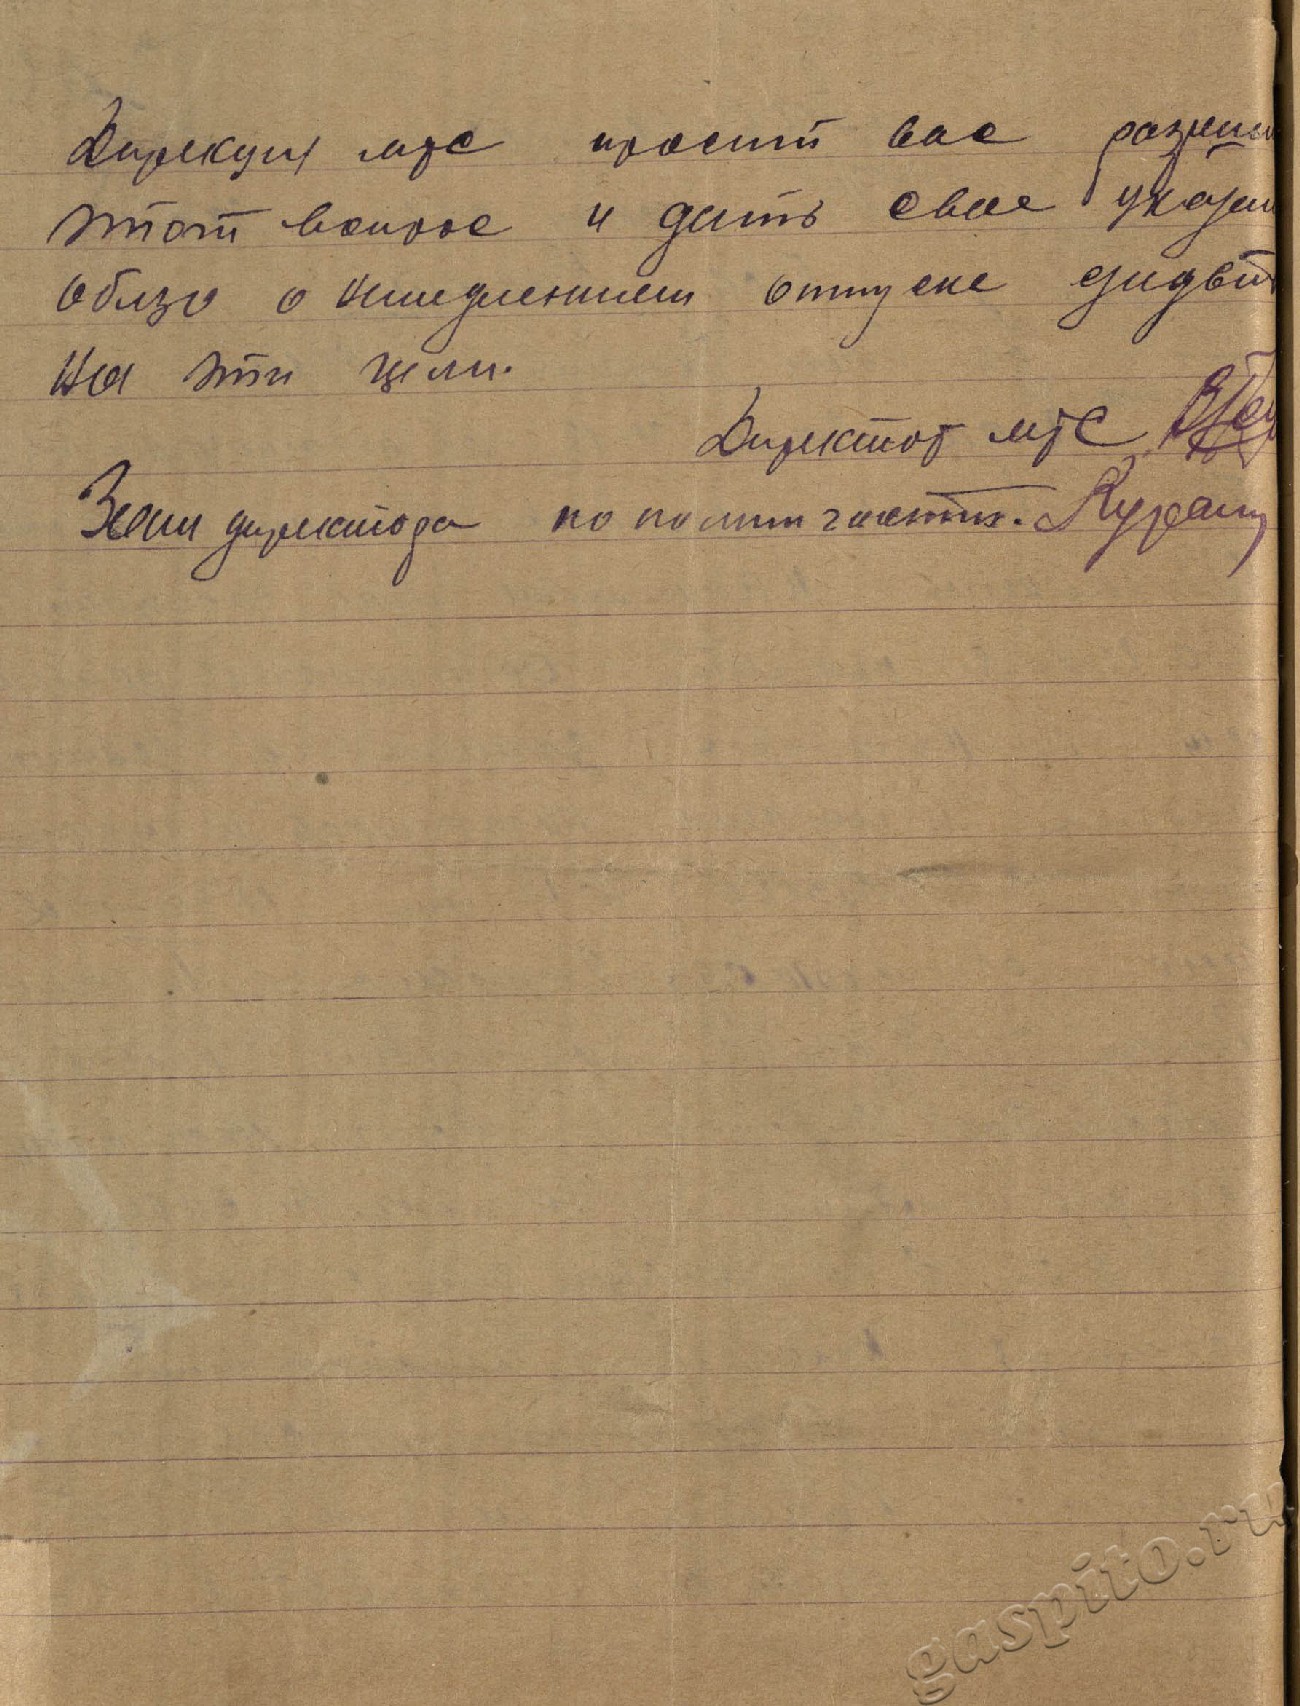 Дирекция мтс просит вас разреши
этот вопрос и дать свое указан
облзо о немедленном отпуске
на эти цели.
Директор мтС
Зам директора по политчасти.
gaspito.ru